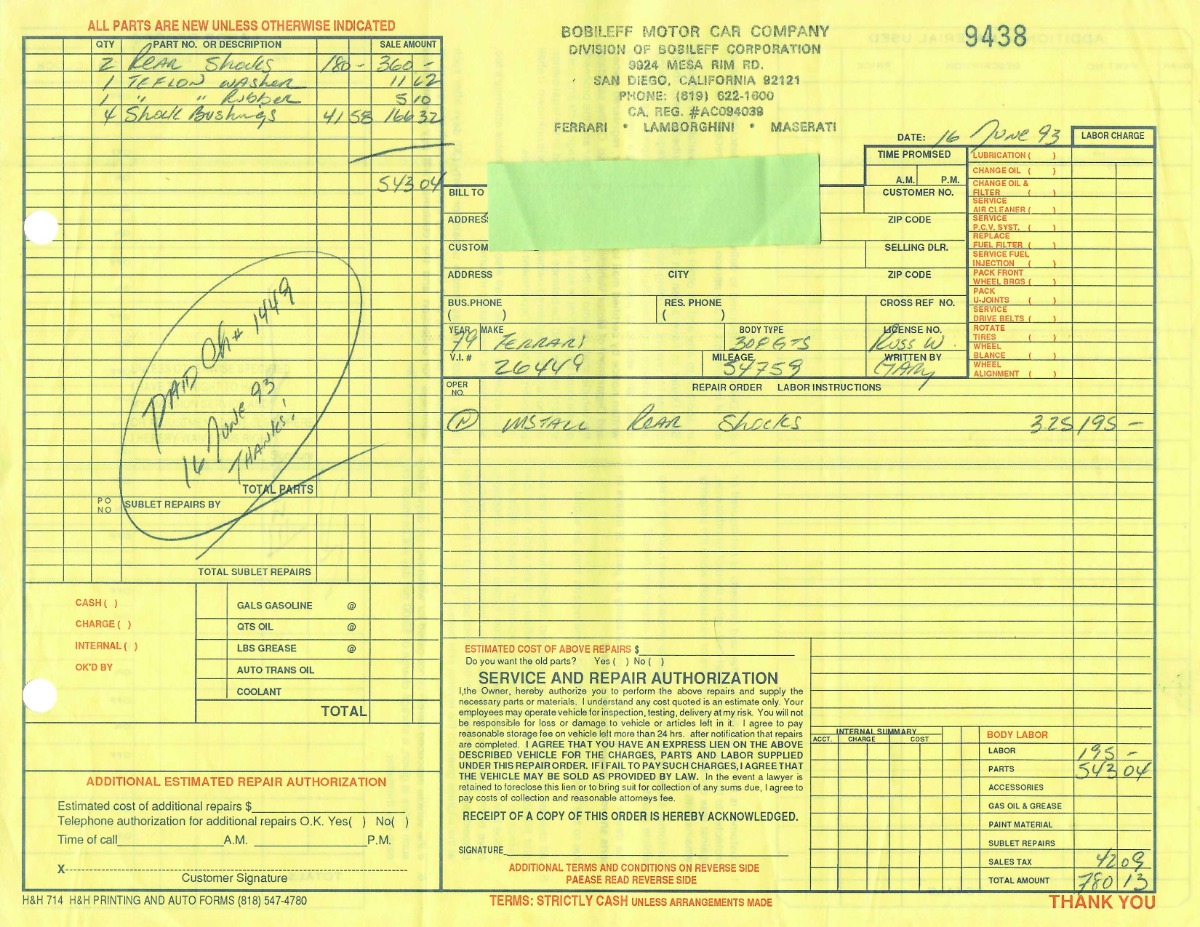 ALL PARTS ARE NEW UNLESS OTHERWISE INDICATED
QTY PART NO. OR DESCRIPTION SALE AMOUNT
2 Rear Shocks 180- 360 -
1 TEFLON WASHER 11 62
1 " " Rubber 5 10
4 Shock Bushings 41 58 166 32
543 04
PAID Ch# 1449
16 JUNE 93
THANKS!
TOTAL PARTS
PO NO SUBLET REPAIRS BY
TOTAL SUBLET REPAIRS
CASH ( )
CHARGE ( )
INTERNAL ( )
OK'D BY
GALS GASOLINE @
QTS OIL @
LBS GREASE @
AUTO TRANS OIL
COOLANT
TOTAL
ADDITIONAL ESTIMATED REPAIR AUTHORIZATION
Estimated cost of additional repairs $
Telephone authorization for additional repairs O.K. Yes( ) No( )
Time of call A.M. P.M.
X
Customer Signature
H&H 714 H&H PRINTING AND AUTO FORMS (818) 547-4780
BOBILEFF MOTOR CAR COMPANY
DIVISION OF BOBILEFF CORPORATION
9924 MESA RIM RD.
SAN DIEGO, CALIFORNIA 92121
PHONE: (619) 622-1600
CA. REG. #AC094039
FERRARI • LAMBORGHINI • MASERATI
9438
DATE: 16 June 93
LABOR CHARGE
TIME PROMISED
A.M. P.M.
BILL TO
CUSTOMER NO.
ADDRES
ZIP CODE
CUSTOM
SELLING DLR.
ADDRESS CITY ZIP CODE
BUS.PHONE ( ) RES. PHONE ( ) CROSS REF NO.
YEAR MAKE BODY TYPE LICENSE NO.
79 FERRARI 308 GTS RUSS W.
V.I. # MILEAGE WRITTEN BY
26449 54759 GARY
LUBRICATION ( )
CHANGE OIL ( )
CHANGE OIL & FILTER ( )
SERVICE AIR CLEANER ( )
SERVICE P.C.V. SYST. ( )
REPLACE FUEL FILTER ( )
SERVICE FUEL INJECTION ( )
PACK FRONT WHEEL BRGS ( )
PACK U-JOINTS ( )
SERVICE DRIVE BELTS ( )
ROTATE TIRES ( )
WHEEL BLANCE ( )
WHEEL ALIGNMENT ( )
OPER NO. REPAIR ORDER LABOR INSTRUCTIONS
INSTALL REAR Shocks 325 195 -
ESTIMATED COST OF ABOVE REPAIRS $
Do you want the old parts? Yes ( ) No ( )
SERVICE AND REPAIR AUTHORIZATION
I,the Owner, hereby authorize you to perform the above repairs and supply the
necessary parts or materials. I understand any cost quoted is an estimate only. Your
employees may operate vehicle for inspection, testing, delivery at my risk. You will not
be responsible for loss or damage to vehicle or articles left in it. I agree to pay
reasonable storage fee on vehicle left more than 24 hrs. after notification that repairs
are completed. I AGREE THAT YOU HAVE AN EXPRESS LIEN ON THE ABOVE
DESCRIBED VEHICLE FOR THE CHARGES, PARTS AND LABOR SUPPLIED
UNDER THIS REPAIR ORDER. IF I FAIL TO PAY SUCH CHARGES, I AGREE THAT
THE VEHICLE MAY BE SOLD AS PROVIDED BY LAW. In the event a lawyer is
retained to foreclose this lien or to bring suit for collection of any sums due, I agree to
pay costs of collection and reasonable attorneys fee.
RECEIPT OF A COPY OF THIS ORDER IS HEREBY ACKNOWLEDGED.
SIGNATURE
ADDITIONAL TERMS AND CONDITIONS ON REVERSE SIDE
PAEASE READ REVERSE SIDE
TERMS: STRICTLY CASH UNLESS ARRANGEMENTS MADE
INTERNAL SUMMARY
ACCT. CHARGE COST
BODY LABOR
LABOR 195 -
PARTS 543 04
ACCESSORIES
GAS OIL & GREASE
PAINT MATERIAL
SUBLET REPAIRS
SALES TAX 42 09
TOTAL AMOUNT 780 13
THANK YOU